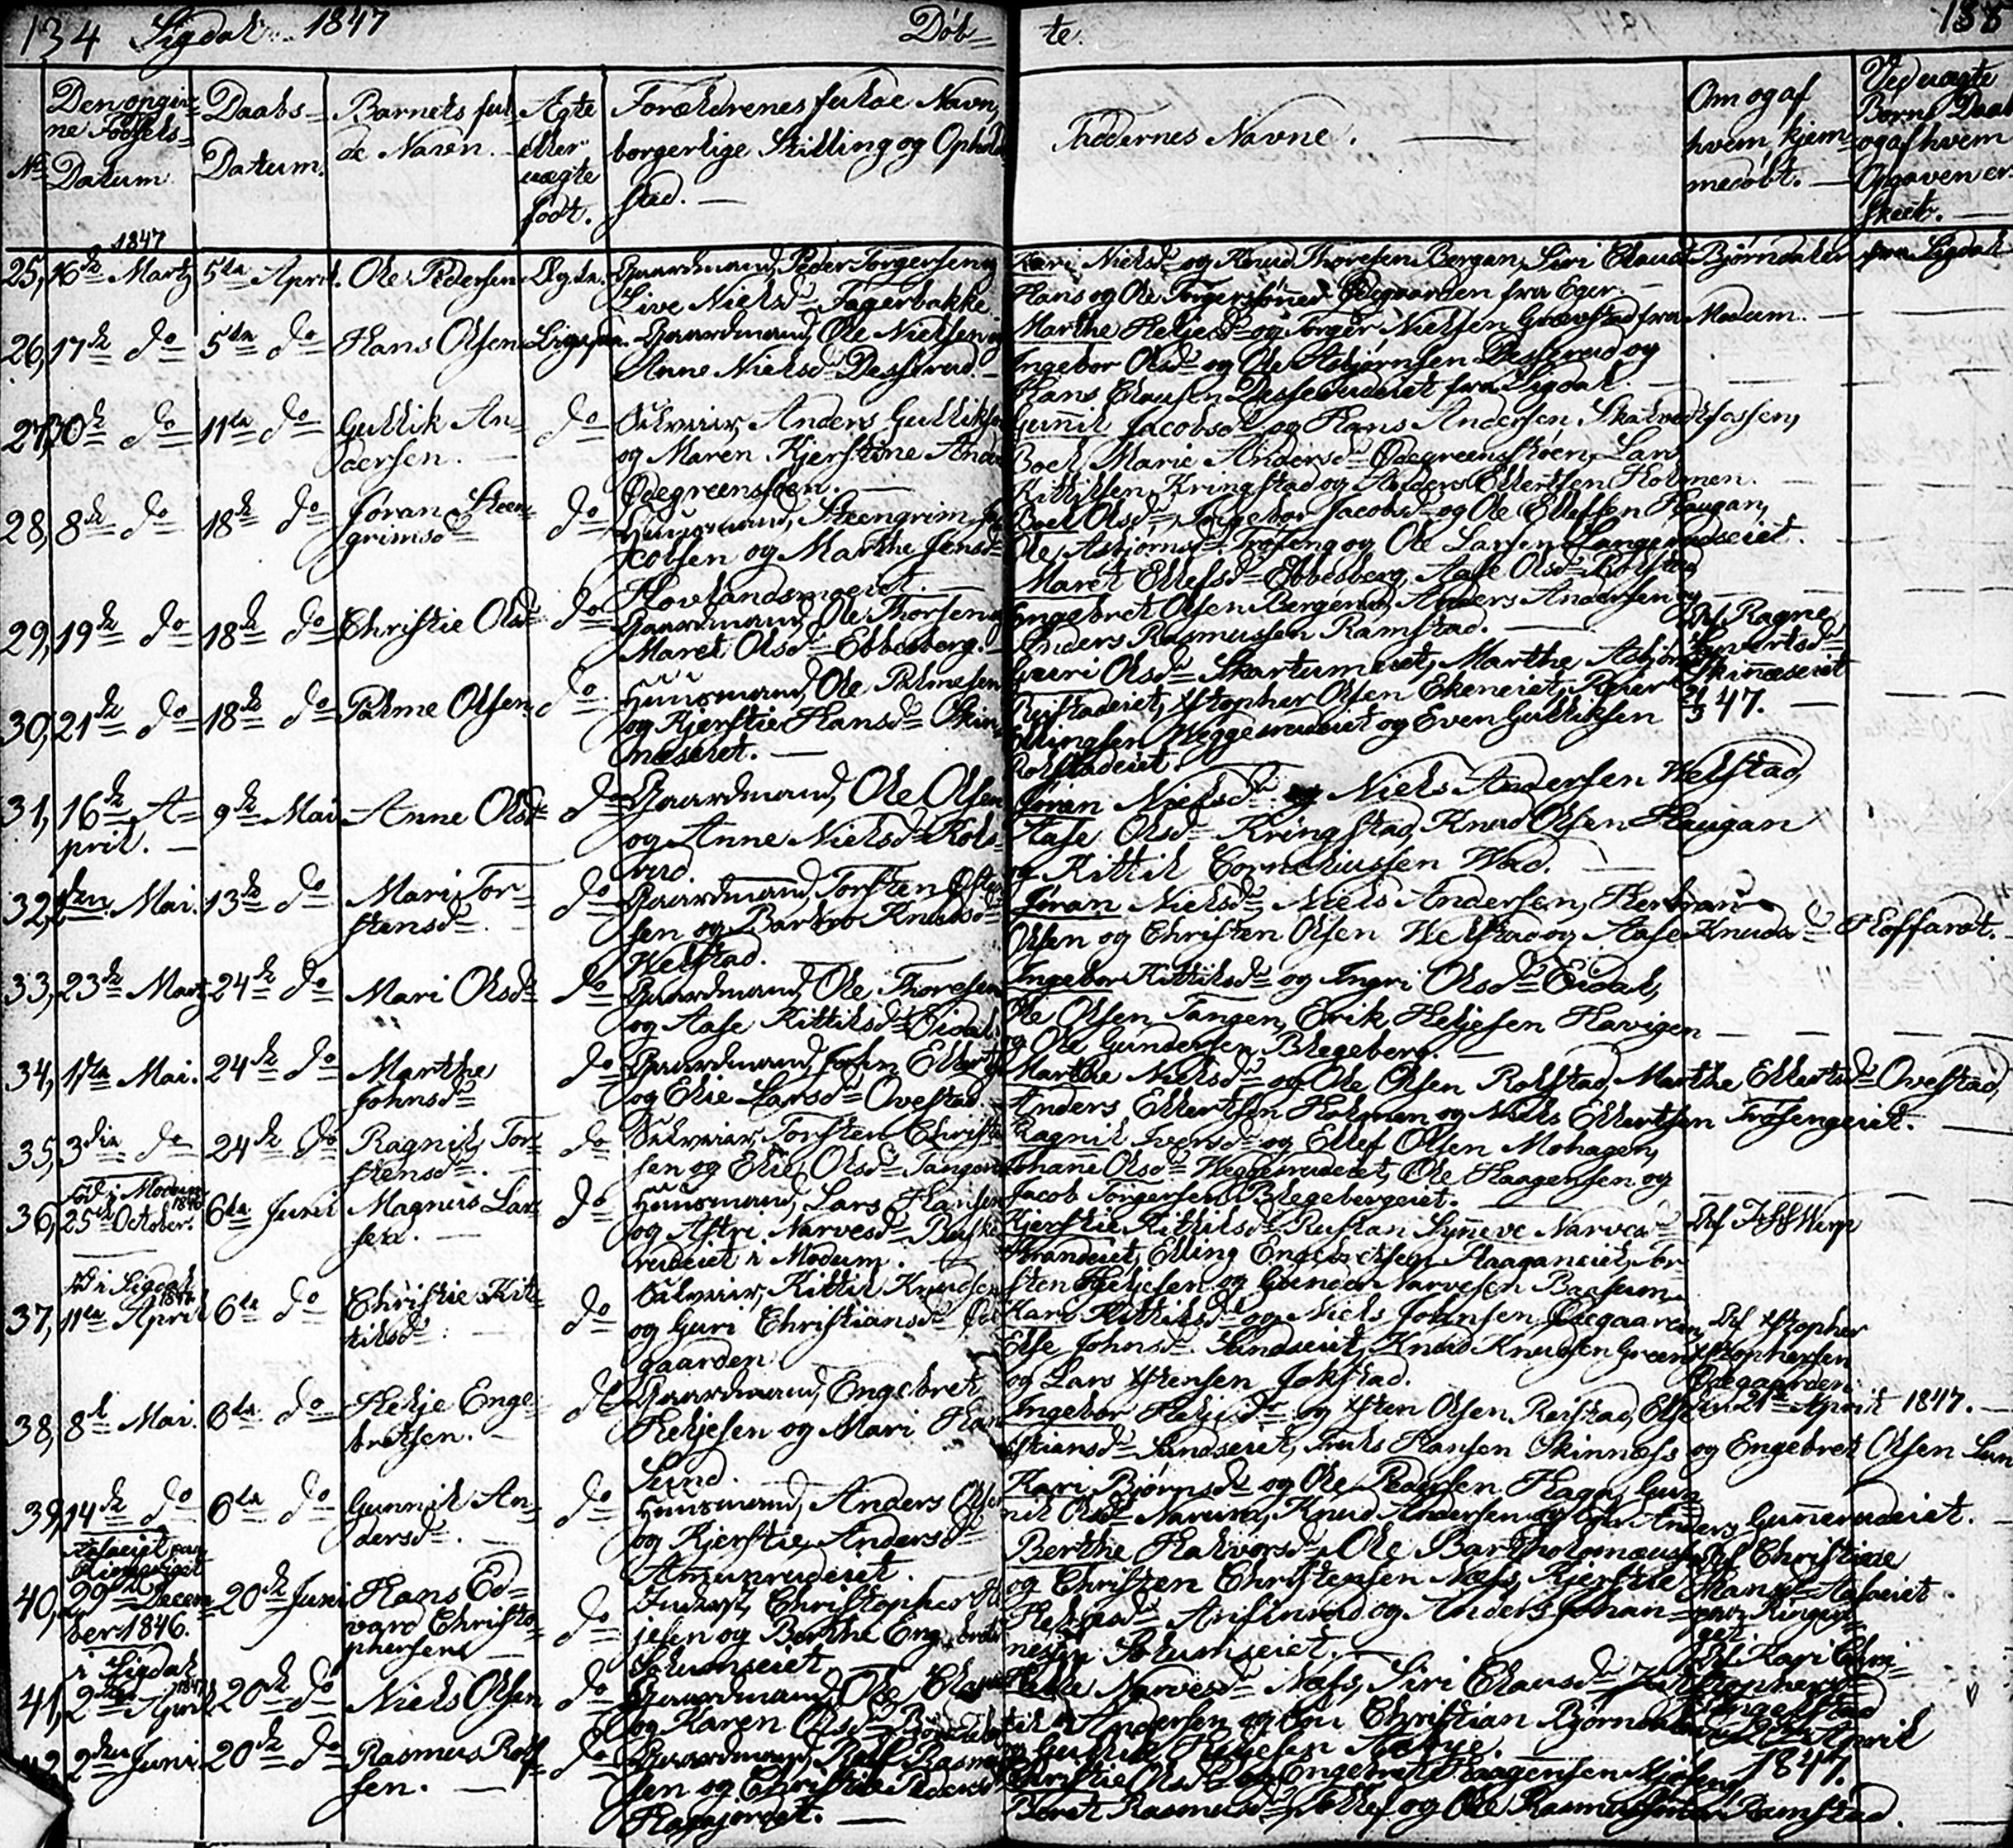 134 Sigdal. 1847
Døb-
te.
138
No
Den opgiv-
ne Fødsels-
Datum
Daabs-
Datum.
Barnets ful-
de Navn.
Ægte
eller
uægte
født.
Forældrenes fulde Navn,
borgerlige Stilling og Opholds
sted.
Faddernes Navne.
Om og af
hvem hjem-
medøbt.
Ved uægte
Børns Daab
og af hvem
Opgaven er
skeet.
1847
25, 16de Martz
5te April.
Ole Pedersen
Ægte.
Gaardmand, Peder Torgersen og
Live Nielsdr Fagerbakke.
Kari Nielsdr og Knud Thoresen Bergan, Siri Clausdr Bjørndalen fra Sigdal
Hans og Ole Torgersønner Ødegaarden fra Eger.
26, 17de do
5te do
Hans Olsen
Gaardmand, Ole Nielsen og
Anne Nielsdr Desserud.
Marthe Helgesdr og Torger Nielsen Grævstad fra Modum.
Ingebor Olsdr og Ole Asbjørnsen Desserud og
Hans Clausen Desserudeiet fra Sigdal.
27, 30de do
11te do
Gullik An-
dersen.
do
Selveier, Anders Gulliks
og Maren Kjerstine Ander
Ødegreensøen.
Gunnil Jacobsdr og Hans Andersen Skalvedtfossen,
Boel Marie Andersdr Ødegreensøen, Lars
Kittilsen Kringstad og Anders Ellertsen Holmen.
28, 8de do
18de do
Jøran Steen-
grimsdr
do
Huusmand, Steengrim Ja
cobsen og Marthe Jensdr
Hovlandsmoeiet.
Boel Olsdr, Ingebor Jacobsdr og Ole Ellefsen Haugan,
Ole Asbjørnsdr Frøseng og Ole Larsen Langerudseiet.
29, 19de do
18de do
Christie Olsdr
do
Gaardmand, Ole Thorsen og
Maret Olsdr Ebbesberg.
Maret Ellefsdr Ebbesberg, Aase Olsdr Rolstad
Ingebret Olsen Bergerud, Anders Andersen og
Anders Rasmussen Ramstad.
30, 21de do
18de do
Palme Olsen
do
Huusmand, Ole Palmesen
og Kjerstie Hansdr Skin-
næseiet.
Guri Olsdr Skartumeiet, Marthe Asbjørn
Rustadeiet, Xstopher Olsen Ekeneiet, Peder
Ellingsen Weggesrudeiet og Even Gulliksen
Rolstadeiet.
Af Ragne
Syvertsdr
Skinæseiet
47.
31, 16de A-
pril.
9de Mai
Anne Olsdr
do
Gaardmand, Ole Olsen
og Anne Nielsdr Kols-
rud.
Jøran Nielsdr og Niels Andersen Welstad,
Aase Olsdr Kringstad, Knud Olsen Haugan
og Kittil Corneliussen Wad.
32, Mai.
13de do
Mari Tor-
stensdr
do
Gaardmand, Torsten Olsen
sen og Barbro Knudsdr
Welstad.
Jøran Nielsdr, Niels Andersen, Herbran
Olsen og Christen Olsen Welstad og Aase Knudsdr Hoffardt.
33, 23de Martz
24de do
Mari Olsdr
do
Gaardmand, Ole Thoresen
og Aase Kittilsdr Eidal.
Ingebor Kittilsdr og Ingri Olsdr Eidal,
Ole Olsen Tangen, Erik Helgesen Havigen
og Ole Gundersen Blegeberg.
34, 17te Mai.
24de do
Marthe
Johnsdr
do
Gaardmand, John Ellerts
og Elie Larsdr Ovestad.
Marthe Nielsdr og Ole Olsen Rolstad, Marthe Ellertsdr Ovestad,
Anders Ellertsen Holmen og Niels Ellertsen Frøsengeiet.
35, 3die do
24de do
Ragnil Tor-
stensdr.
do
Selveier, Torsten Christen
sen og Elie Olsdr Tangen
Ragnil Iversdr og Ellef Olsen Mohagen,
Johanne Olsdr Weggesrudeiet, Ole Haagensen og
Jacob Torgersen Blegebergeiet.
fød i Modum
1846
36, 25de October.
6te Juni
Magnus Lar-
sen.
do
Huusmand, Lars Hansen
og Astri Narvesdr Buske
rudeiet i Modum.
Kjerstie Kittilsdr Rustan, Synneve Narvesdr
Strandeiet, Elling Engebretsen Haaganeiet, Tor-
sten Helgesen og Gunder Narvesen Baasum
fød i Sigdal
37, 11te April
6te do
Christie Kit-
tilsdr
do
Selveier, Kittil Knudsen
og Guri Christiansdr Øde
gaarden
Kari Kittilsdr og Niels Johnsen Ødegaarden,
Else Johnsdr Sundseiet, Knud Knudsen Green
og Lars Xstensen Jokstad.
Af Xstopher
Xstophersen
Ødegaarden
den 21de April 1847.
38, 8de Mai.
6te do
Helge Enge-
bretsen.
do
Gaardmand, Engebret
Helgesen og Mari Han
Sund.
Ingebor Helgesdr og Xsten Olsen Reistad, Else
Xstiansdr Sundseiet, Truls Hansen Skinnæss og Engebret Olsen Sun
39, 14de do
6te do
Gunnil An-
dersdr.
do
Huusmand, Anders Olsen
og Kjerstie Andersdr
Amunrudeiet.
Kari Bjørnsdr og Ole Pedersen Haga, Gun-
nil Olsdr Narum, Knud Andersen og Anders Gunnerudeiet.
40, 29de Decem-
ber 1846.
20de Juni
Hans Ed-
vard Christo-
phersen
do
Inderst, Christopher Hel
jesen og Berthe Engebrets
Solumseiet
Berthe Halvorsdr, Ole Bartholomæus
og Christen Christensen Næss, Kjerstie
Helgesdr Arifinrud og Anders Johan-
nesen Solumseiet.
Af Christine
i Sigdal
1847
41, 2den April
20de do
Niels Olsen
do
Gaardmand, Ole Claus
og Karen Olsdr Bjørndal
Helle Narvesdr Næss, Siri Clausdr
Andersen og Christian Bjørndalen
Af Kari Chri-
stophersdr
Engelstad
April
1847.
42, 2den Juni
20de do
Rasmus Rolf-
sen.
do
Gaardmand, Rolf Rasmus
sen og Christie Pedersdr
Hagajordet.
Christie Olsdr og Engebret Haagensen Mjøseng,
Beret Rasmusdr, Tollef og Ole Rasmussønner Ramstad.